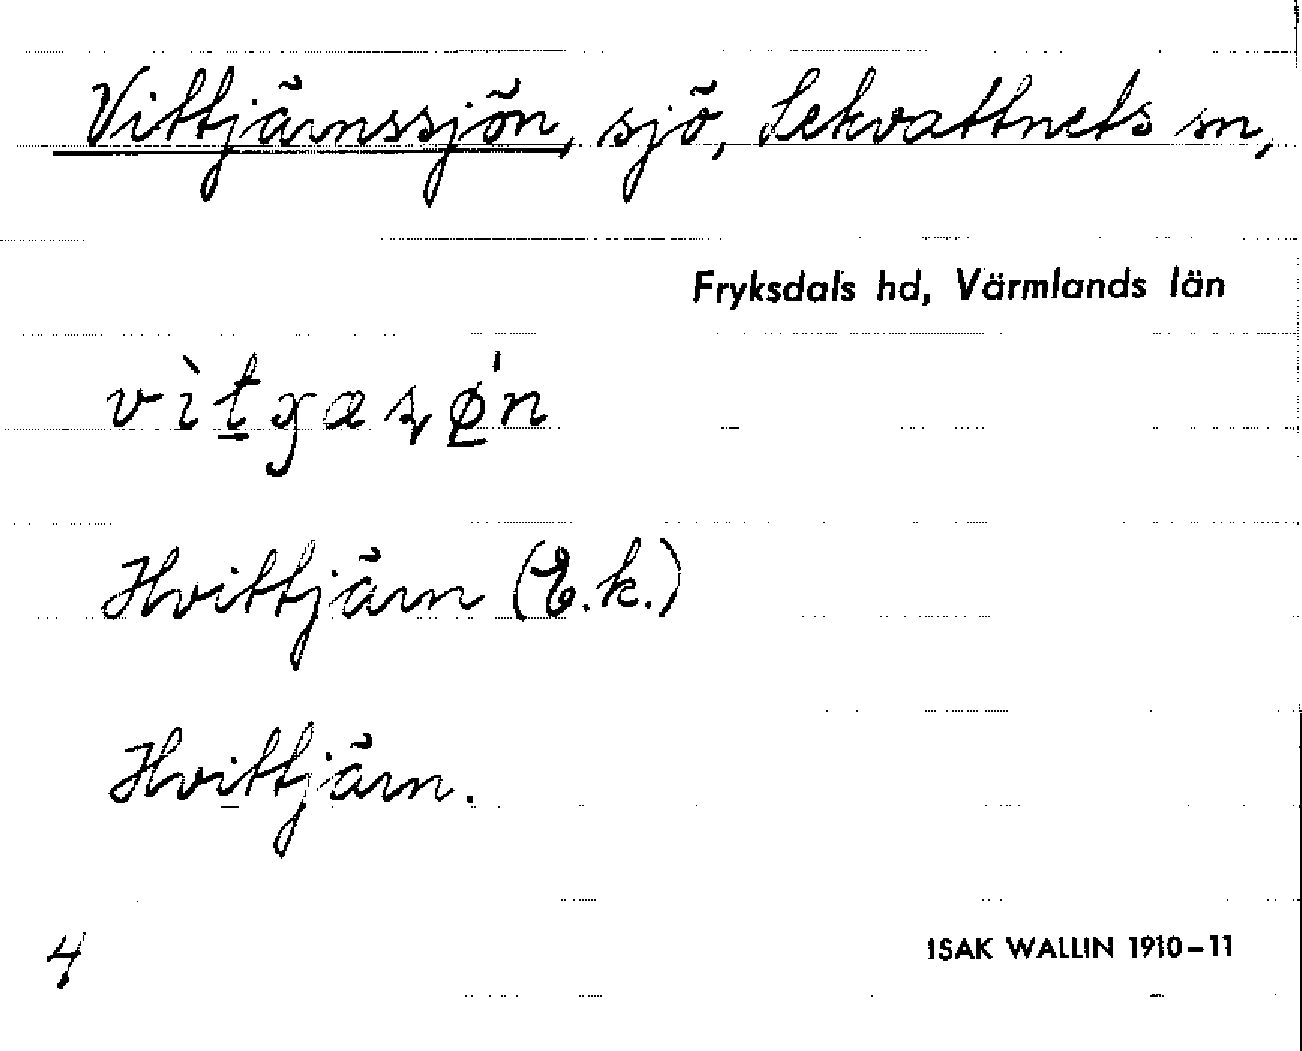 Vittjärnssjön, sjö, Lekvattnets sn,
Fryksdals hd, Värmlands län
Hvittjärn (E.k.)
Hvittjärn.
4
ISAK WALLIN 1910-11